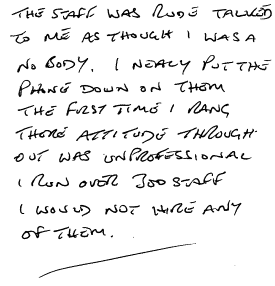 THE STAFF WAS RUDE TALKED
TO ME AS THOUGH I WAS A
NO BODY. I NEALY PUT THE
PHONE DOWN ON THEM
THE FIRST TIME I RANG
THERE ATTITUDE THROUGH
OUT WAS UNPROFESSIONAL
I RUN OVER 300 STAFF
I WOULD NOT HIRE ANY
OF THEM.